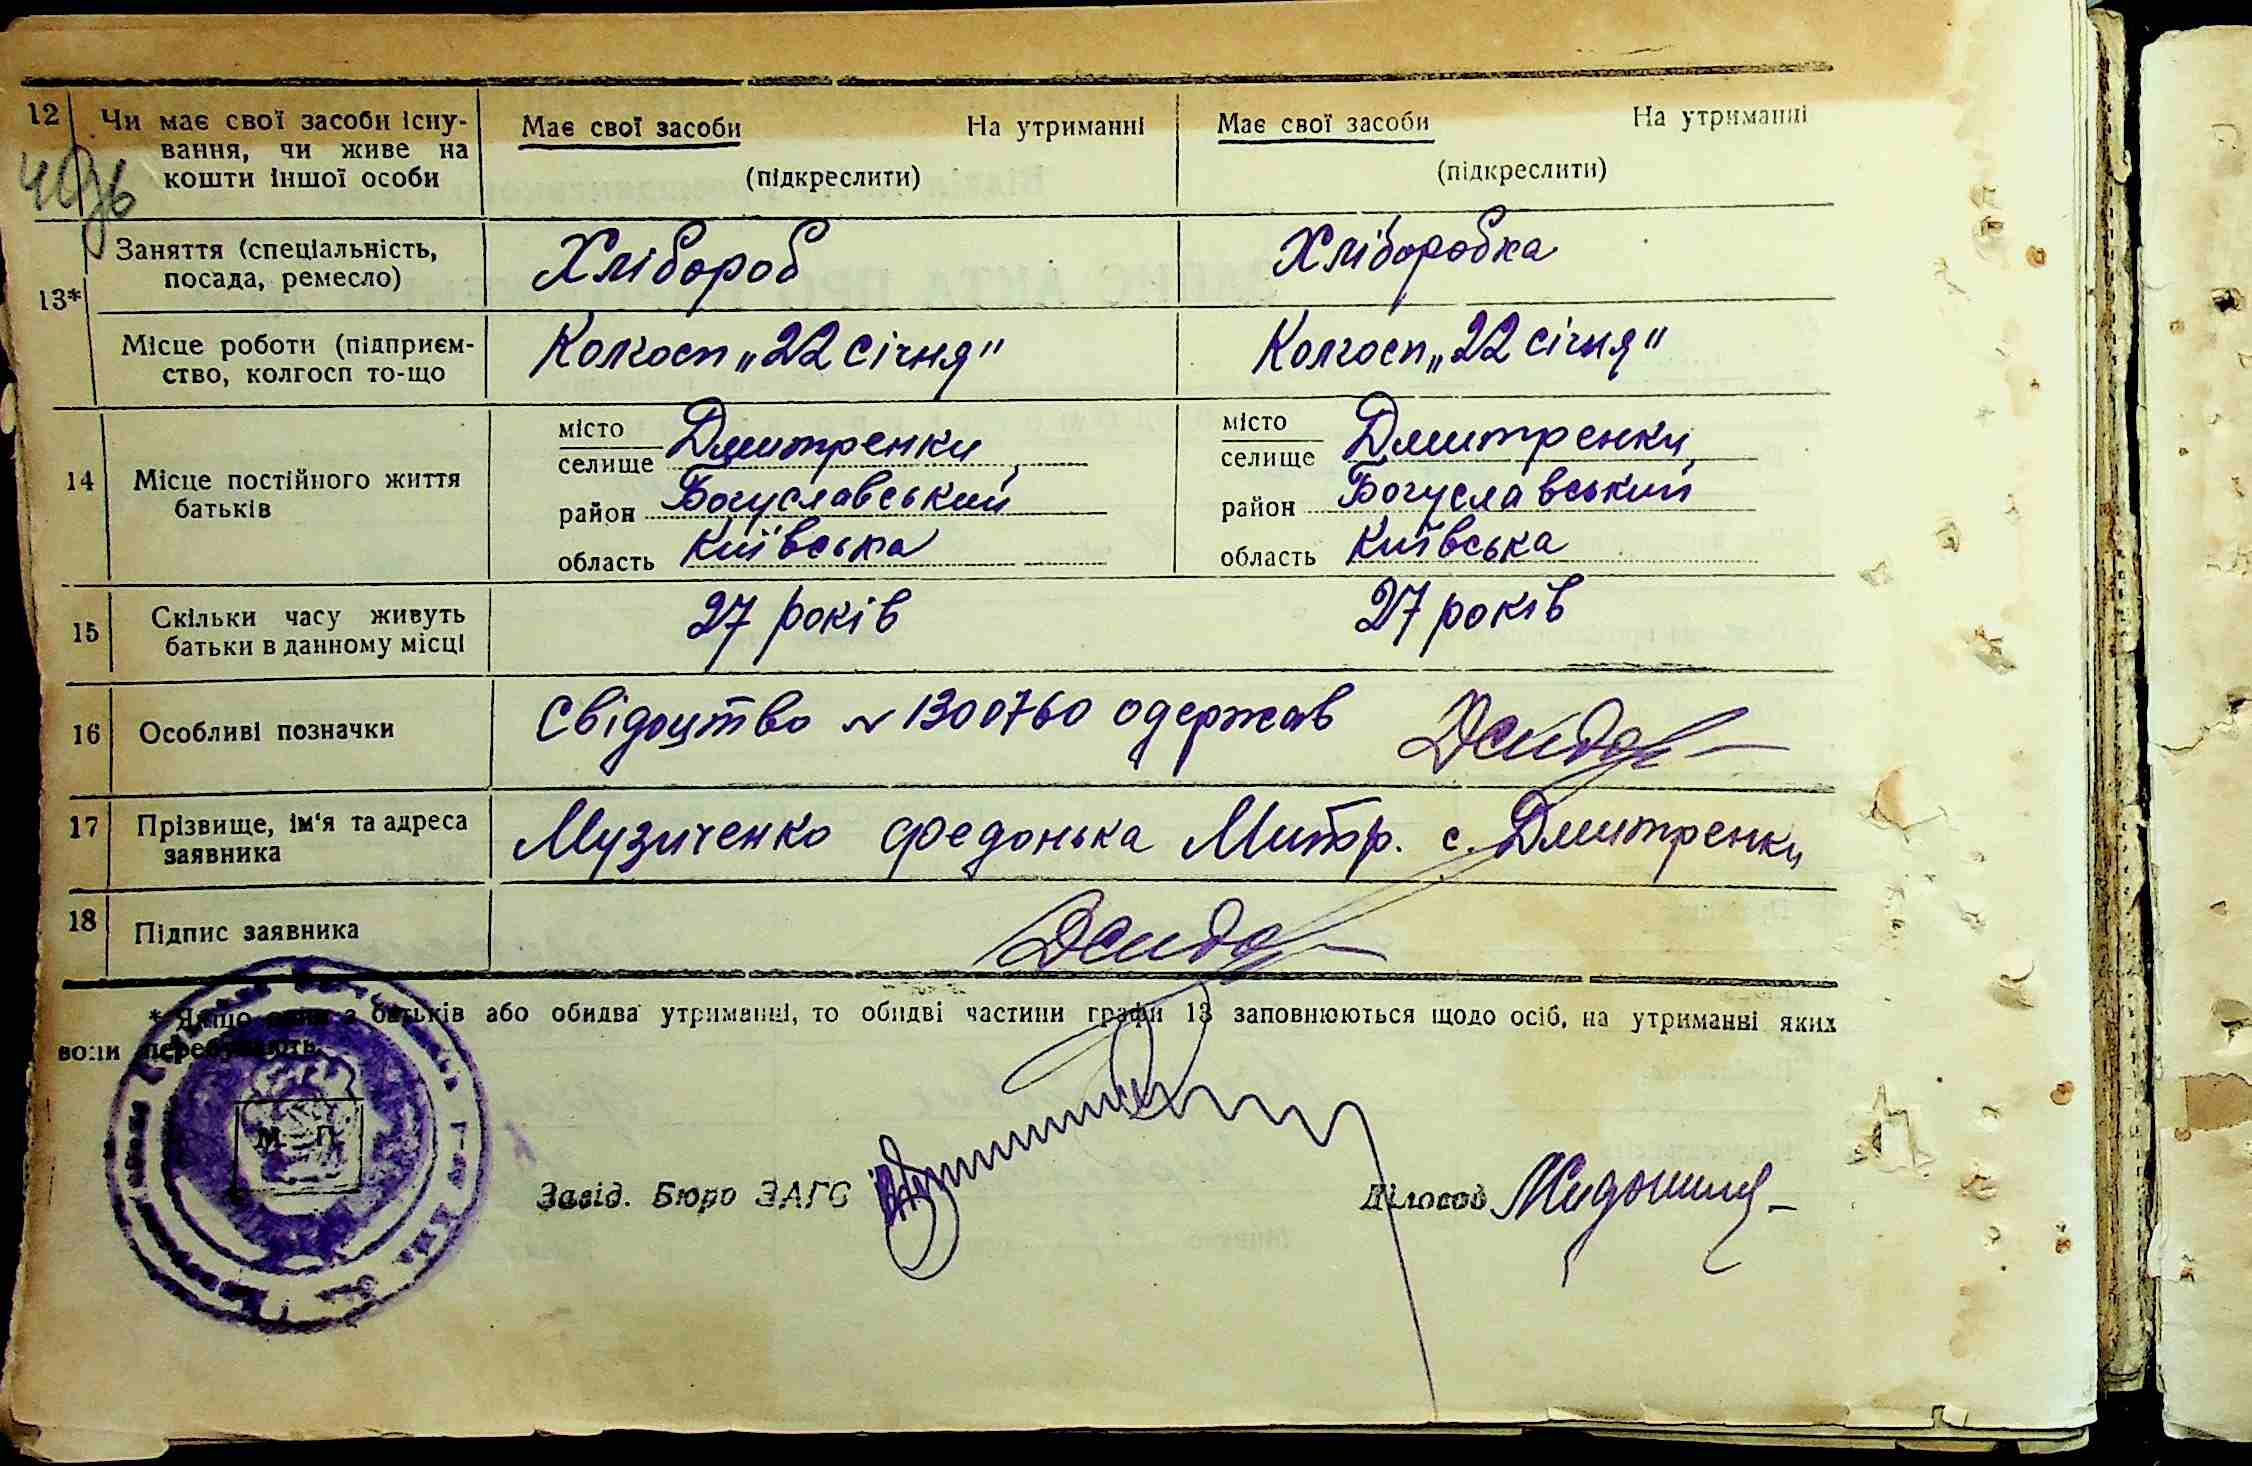 12 Чи має свої засоби існу-
вання, чи живе на
кошти іншої особи
Має свої засоби На утриманні
(підкреслити)
Має свої засоби На утриманні
(підкреслити)
13* Заняття (спеціальність,
посада, ремесло)
Хлібороб
Хліборобка
Місце роботи (підприєм-
ство, колгосп то-що
Колгосп „22 січня"
Колгосп „22 січня"
14 Місце постійного життя
батьків
місто
селище Дмитренки
район Богуславський
область Київська
місто
селище Дмитренки
район Богуславський
область Київська
15 Скільки часу живуть
батьки в данному місці
27 років
27 років
16 Особливі позначки
Свідоцтво № 1300760 одержав
17 Прізвище, ім'я та адреса
заявника
Музиченко Федонька Митр. с. Дмитренки
18 Підпис заявника
* Якщо один з батьків або обидва утриманні, то обидві частини графи 13 заповнюються щодо осіб, на утриманні яких
вони перебувають.
М. П.
Завід. Бюро ЗАГС
Діловод